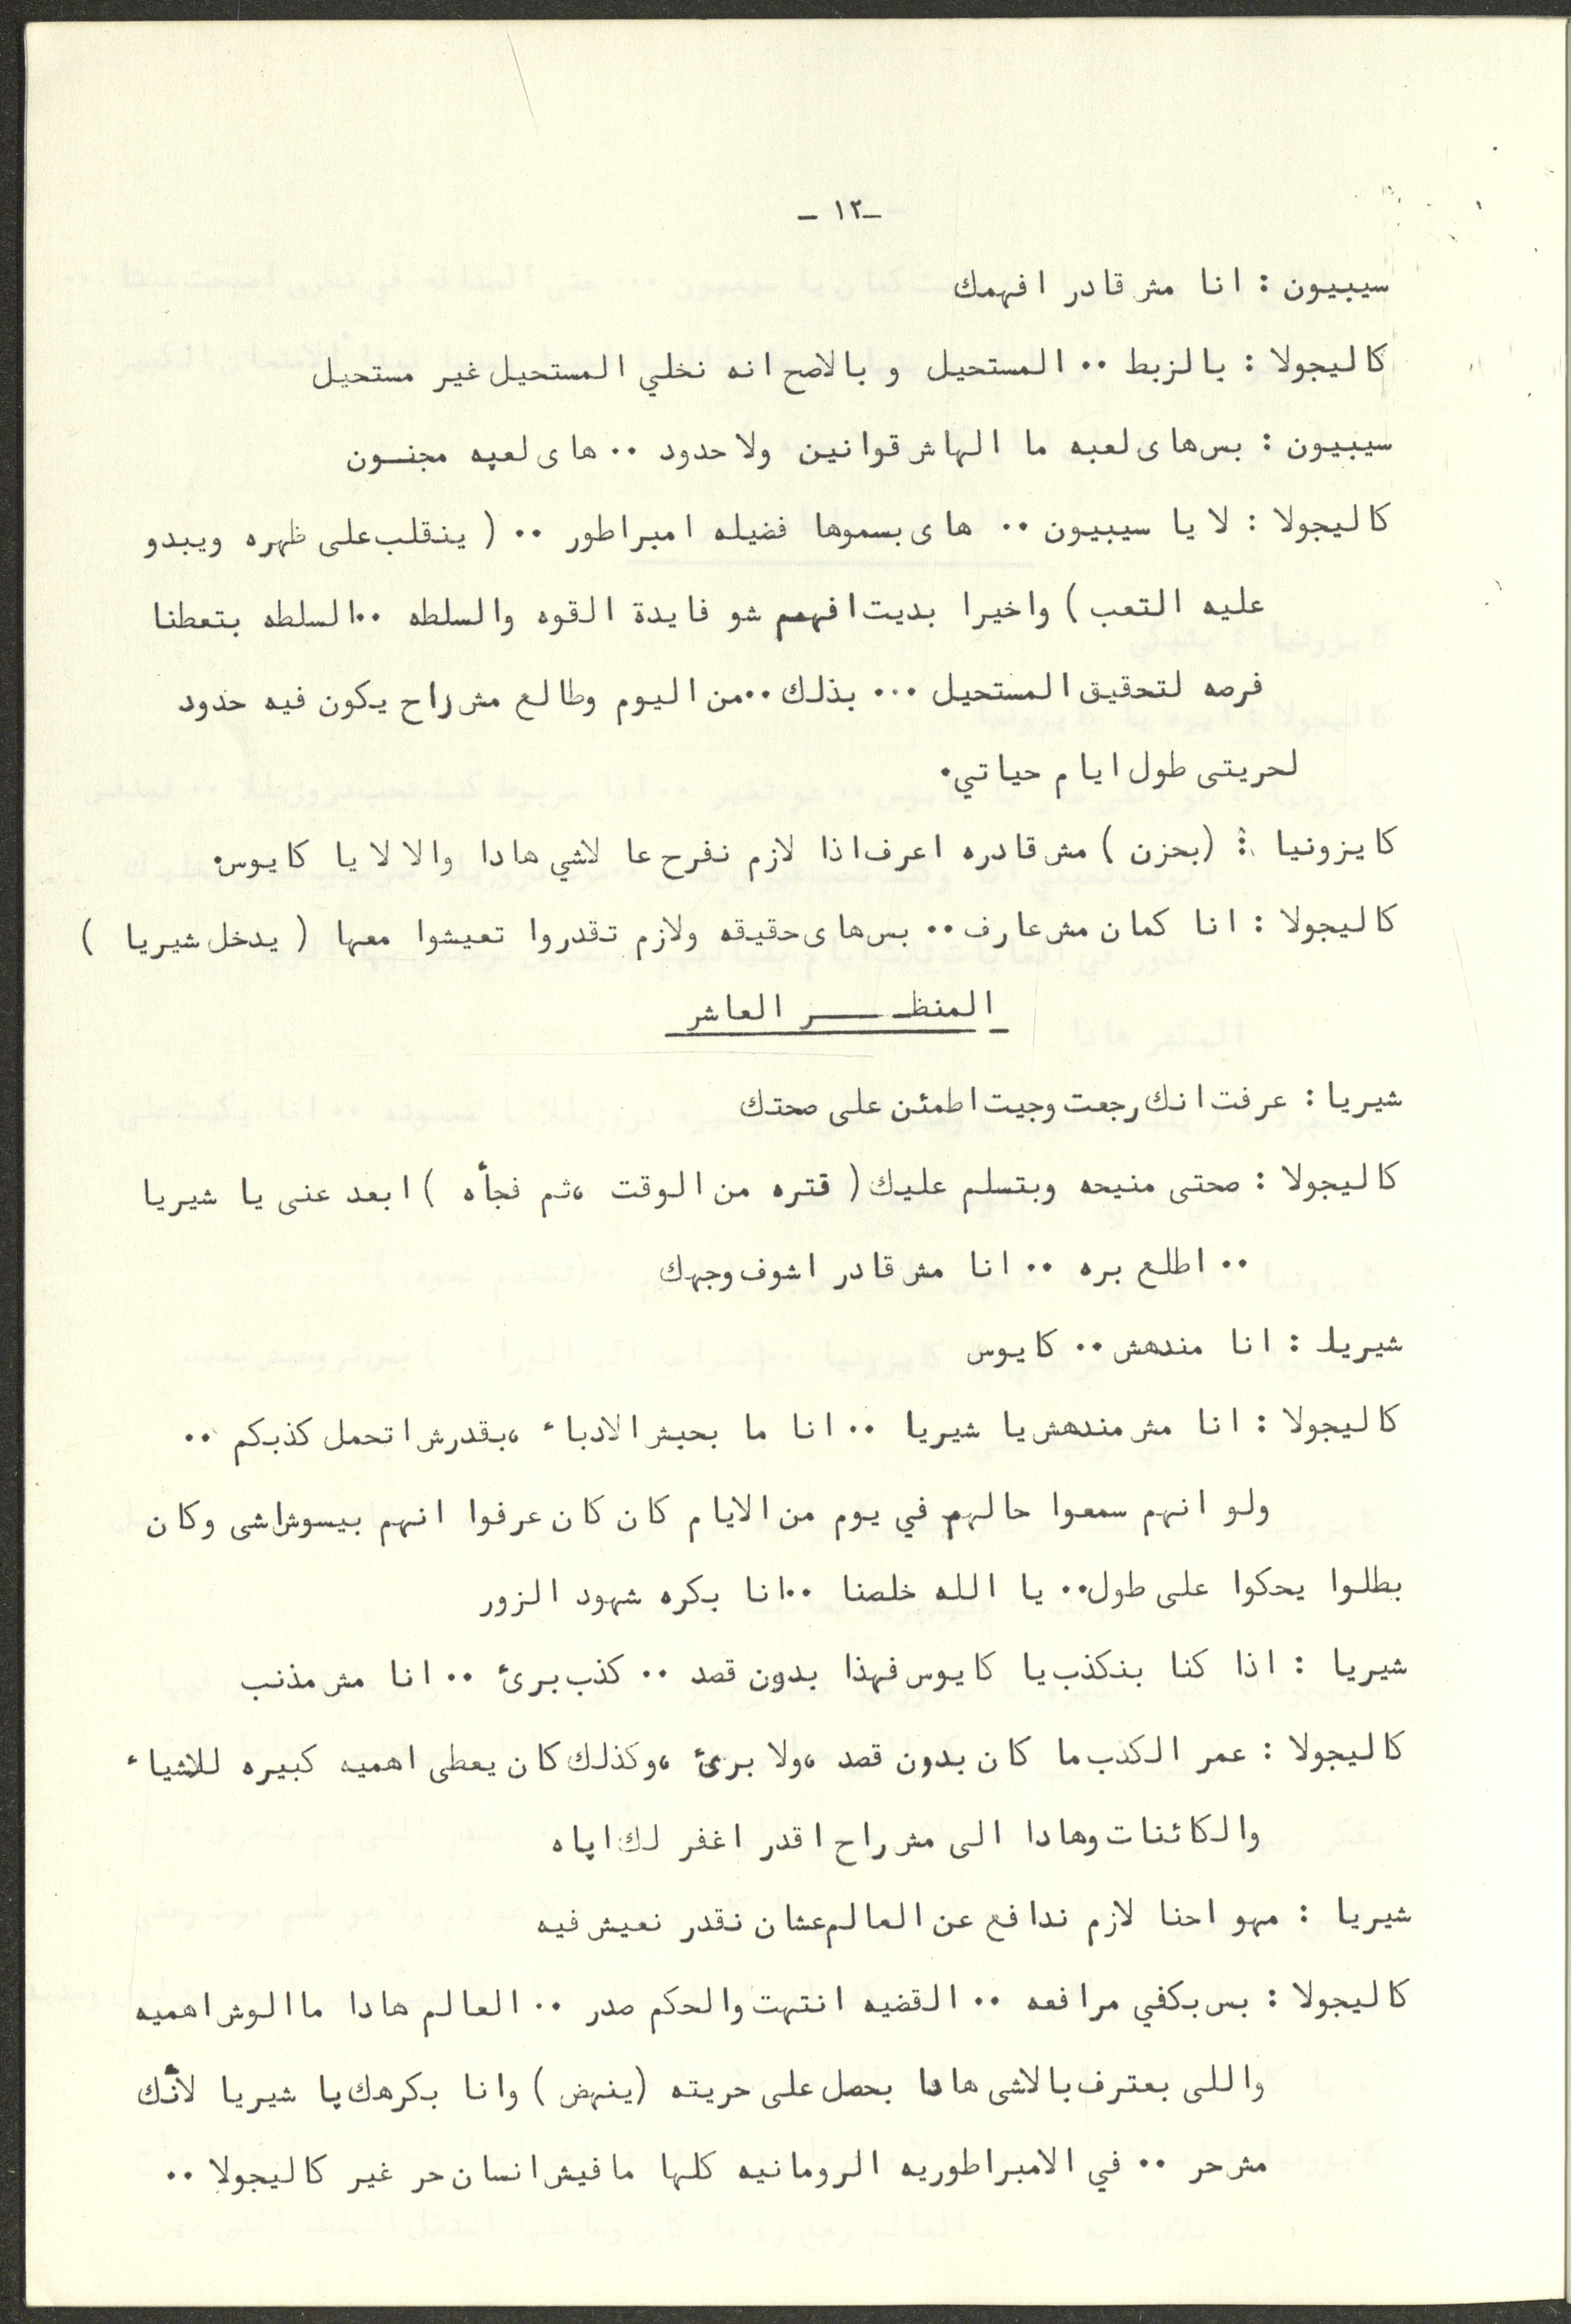 -١٢-
سيبيون : انا مش قادر افهمك
كاليجولا : بالزبط ٠٠ المستحيل و بالاصح انه نخلي المستحيل غير مستحيل
سيبيون : بس هاى لعبه ما الهاش قوانين ولا حدود ٠٠ هاى لعبه مجنــون
كاليجولا : لا يا سيبيون ٠٠ هاى بسموها فضيله امبراطور ٠٠ ( ينقلب على ظهره ويبدو
عليه التعب ) واخيرا بديت افهم شو فايدة القوه والسلطه ٠٠السلطه بتعطنا
فرصه لتحقيق المستحيل ٠٠٠ بذلك ٠٠من اليوم وطالع مش راح يكون فيه حدود
لحريتى طول ايام حياتي٠
كايزونيا : (بحزن ) مش قادره اعرف اذا لازم نفرح عا لاشي هادا والا لا يا كايوس٠
كاليجولا : انا كمان مش عارف ٠٠ بس هاى حقيقه ولازم تقدروا تعيشوا معها ( يدخل شيريا )
المنظــــر العاشر
شيريا : عرفت انك رجعت وجيت اطمئن على صحتك
كاليجولا : صحتى منيحه وبتسلم عليك ( فتره من الوقت ،ثم فجأه ) ابعد عنى يا شيريا
٠٠ اطلع بره ٠٠ انا مش قادر اشوف وجهك
شيريا : انا مندهش ٠٠ كايوس
كاليجولا : انا مش مندهش يا شيريا ٠٠ انا ما بحبش الادباء ،بقدرش اتحمل كذبكم ٠٠
ولو انهم سمعوا حالهم في يوم من الايام كان كان عرفوا انهم بيسوش اشى وكان
بطلوا يحكوا على طول٠٠ يا الله خلصنا ٠٠انا بكره شهود الزور
شيريا : اذا كنا بنكذب يا كايوس فهذا بدون قصد ٠٠ كذب برئ ٠٠ انا مش مذنب
كاليجولا : عمر الكدب ما كان بدون قصد ،ولا برئ ،وكذلك كان يعطى اهميه كبيره للاشياء
والكائنات وهادا الى مش راح اقدر اغفر لك اياه
شيريا : مهو احنا لازم ندافع عن العالم عشان نقدر نعيش فيه
كاليجولا : بس بكفي مرافعه ٠٠ القضيه انتهت والحكم صدر ٠٠ العالم هادا ما الوش اهميه
واللى بعترف بالاشى هادا بحصل على حريته (ينهض ) وانا بكرهك يا شيريا لأنك
مش حر ٠٠ في الامبراطوريه الرومانيه كلها مافيش انسان حر غير كاليجولا ٠٠